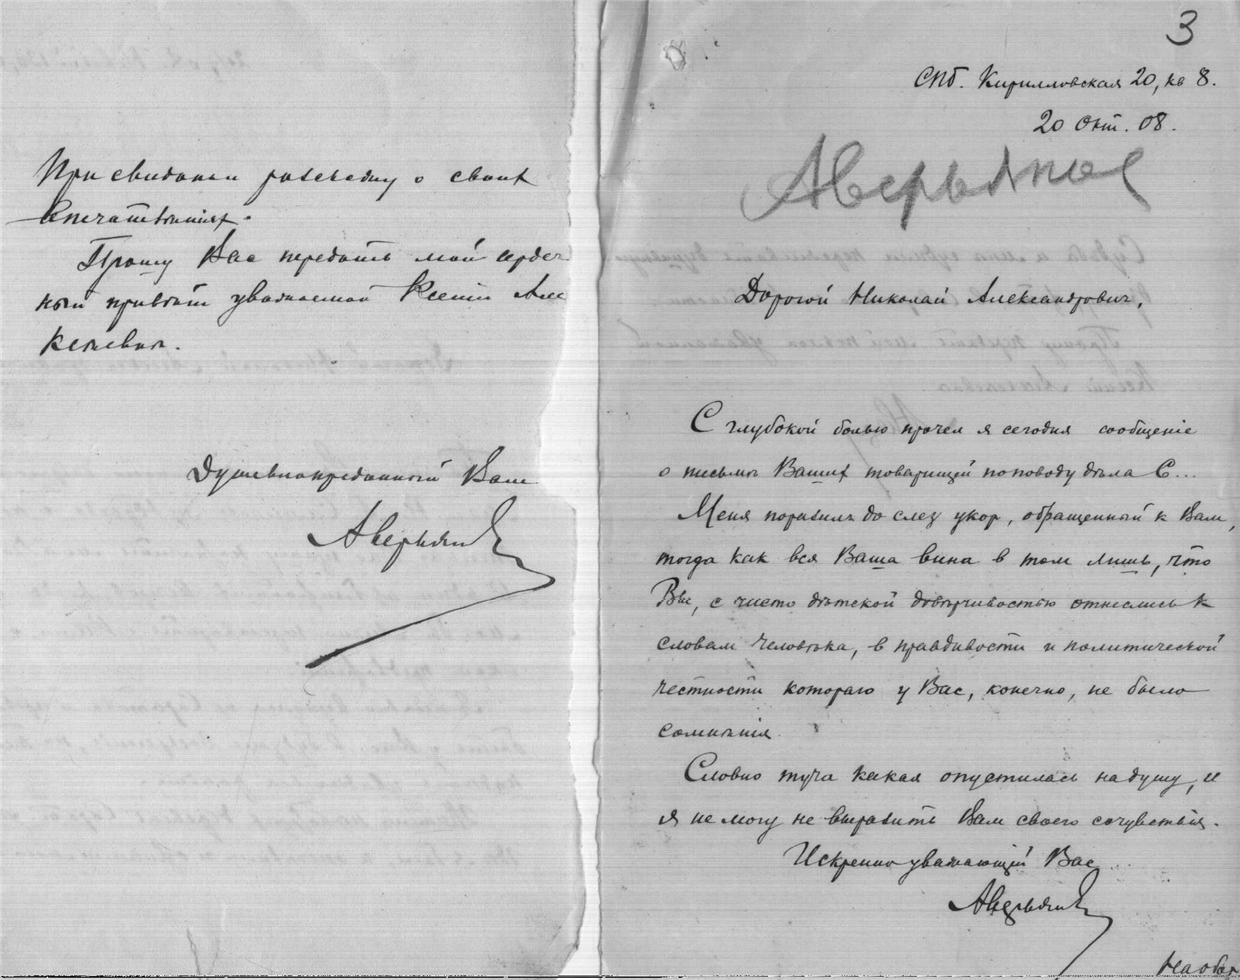 При свидании разскажу о своих
впечатлѣніях.
Прошу Вас передать мой сердеч
ный привѣт уважаемой Ксеніи Але
ксѣевнѣ.
Душевнопреданный Вам
Аверьянов
3
СПб. Кирилловская 20, кв 8.
20 Окт. 08.
Аверьянов
Дорогой Николай Александрович,
С глубокой болью прочел я сегодня сообщеніе
о письмѣ Ваших товарищей по поводу дѣла С...
Меня поразил до слез укор, обращенный к Вам,
тогда как вся Ваша вина в том лишь, что
Вы, с чисто дѣтской довѣрчивостью отнеслись к
словам человѣка, в правдивости и политической
честности котораго у Вас, конечно, не было
сомнѣнія.
Словно туча какая опустилась на душу, и
я не могу не выразить Вам своего сочувствія.
Искренно уважающій Вас
Аверьянов
На обор.